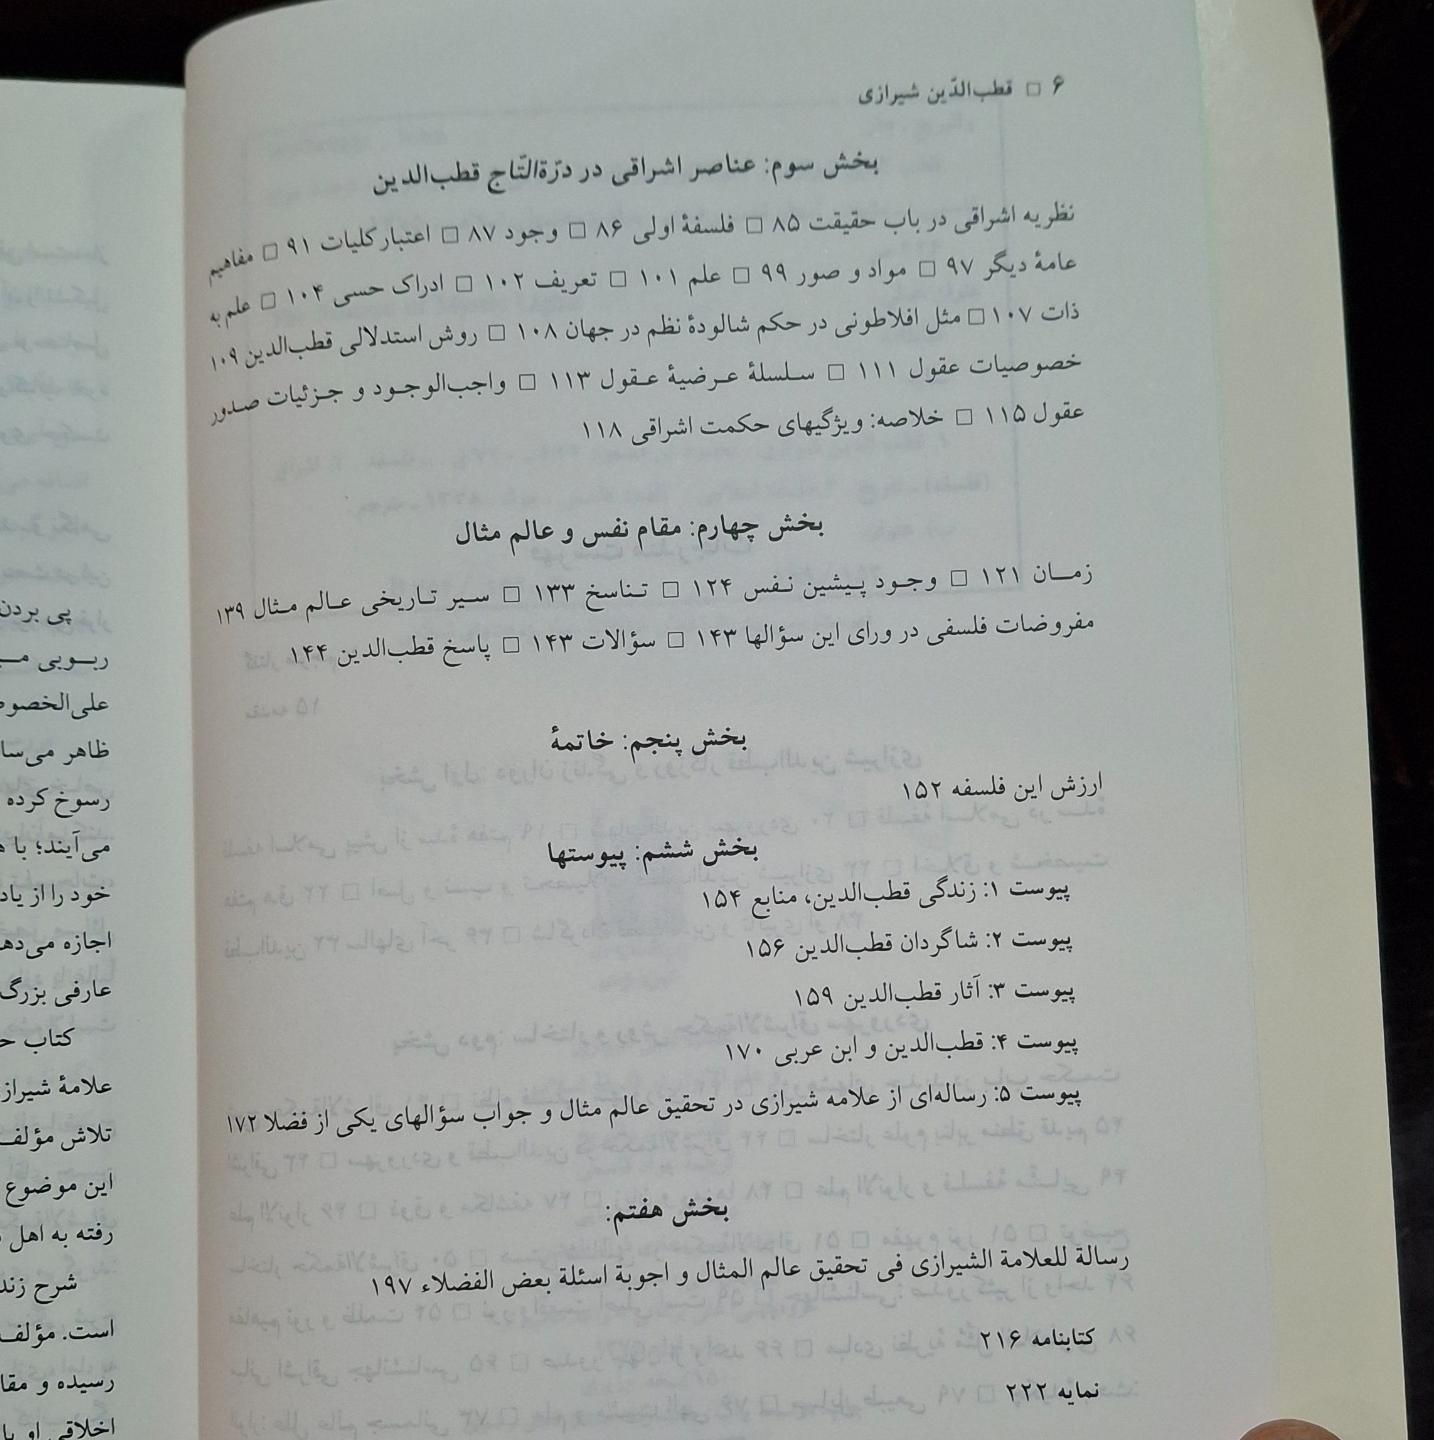 ۶ □ قطب‌الدّین شیرازی
بخش سوم: عناصر اشراقی در درّةالتّاج قطب‌الدین
نظریه اشراقی در باب حقیقت ۸۵ □ فلسفهٔ اولی ۸۶ □ وجود ۸۷ □ اعتبار کلیات ۹۱ □ مفاهیم
عامهٔ دیگر ۹۷ □ مواد و صور ۹۹ □ علم ۱۰۱ □ تعریف ۱۰۲ □ ادراک حسی ۱۰۴ □ علم به
ذات ۱۰۷ □ مثل افلاطونی در حکم شالودهٔ نظم در جهان ۱۰۸ □ روش استدلالی قطب‌الدین ۱۰۹
خصوصیات عقول ۱۱۱ □ سلسلهٔ عرضیهٔ عقول ۱۱۳ □ واجب‌الوجود و جزئیات صدور
عقول ۱۱۵ □ خلاصه: ویژگیهای حکمت اشراقی ۱۱۸
بخش چهارم: مقام نفس و عالم مثال
زمان ۱۲۱ □ وجود پیشین نفس ۱۲۴ □ تناسخ ۱۳۳ □ سیر تاریخی عالم مثال ۱۳۹
مفروضات فلسفی در ورای این سؤالها ۱۴۳ □ سؤالات ۱۴۳ □ پاسخ قطب‌الدین ۱۴۴
بخش پنجم: خاتمهٔ
ارزش این فلسفه ۱۵۲
بخش ششم: پیوستها
پیوست ۱: زندگی قطب‌الدین، منابع ۱۵۴
پیوست ۲: شاگردان قطب‌الدین ۱۵۶
پیوست ۳: آثار قطب‌الدین ۱۵۹
پیوست ۴: قطب‌الدین و ابن عربی ۱۷۰
پیوست ۵: رساله‌ای از علامه شیرازی در تحقیق عالم مثال و جواب سؤالهای یکی از فضلا ۱۷۲
بخش هفتم:
رسالة للعلامة الشیرازی فی تحقیق عالم المثال و اجوبة اسئلة بعض الفضلاء ۱۹۷
کتابنامه ۲۱۶
نمایه ۲۲۲
پی بردن
ربوبی
علی‌الخصوص
ظاهر می‌سا
رسوخ کرده
می‌آیند؛ با
خود را از یاد
اجازه می‌ده
عارفی بزرگ
کتاب ح
علامهٔ شیراز
تلاش مؤلف
این موضوع
رفته به اهل
شرح زند
است. مؤلف
رسیده و مقا
اخلاقی او با